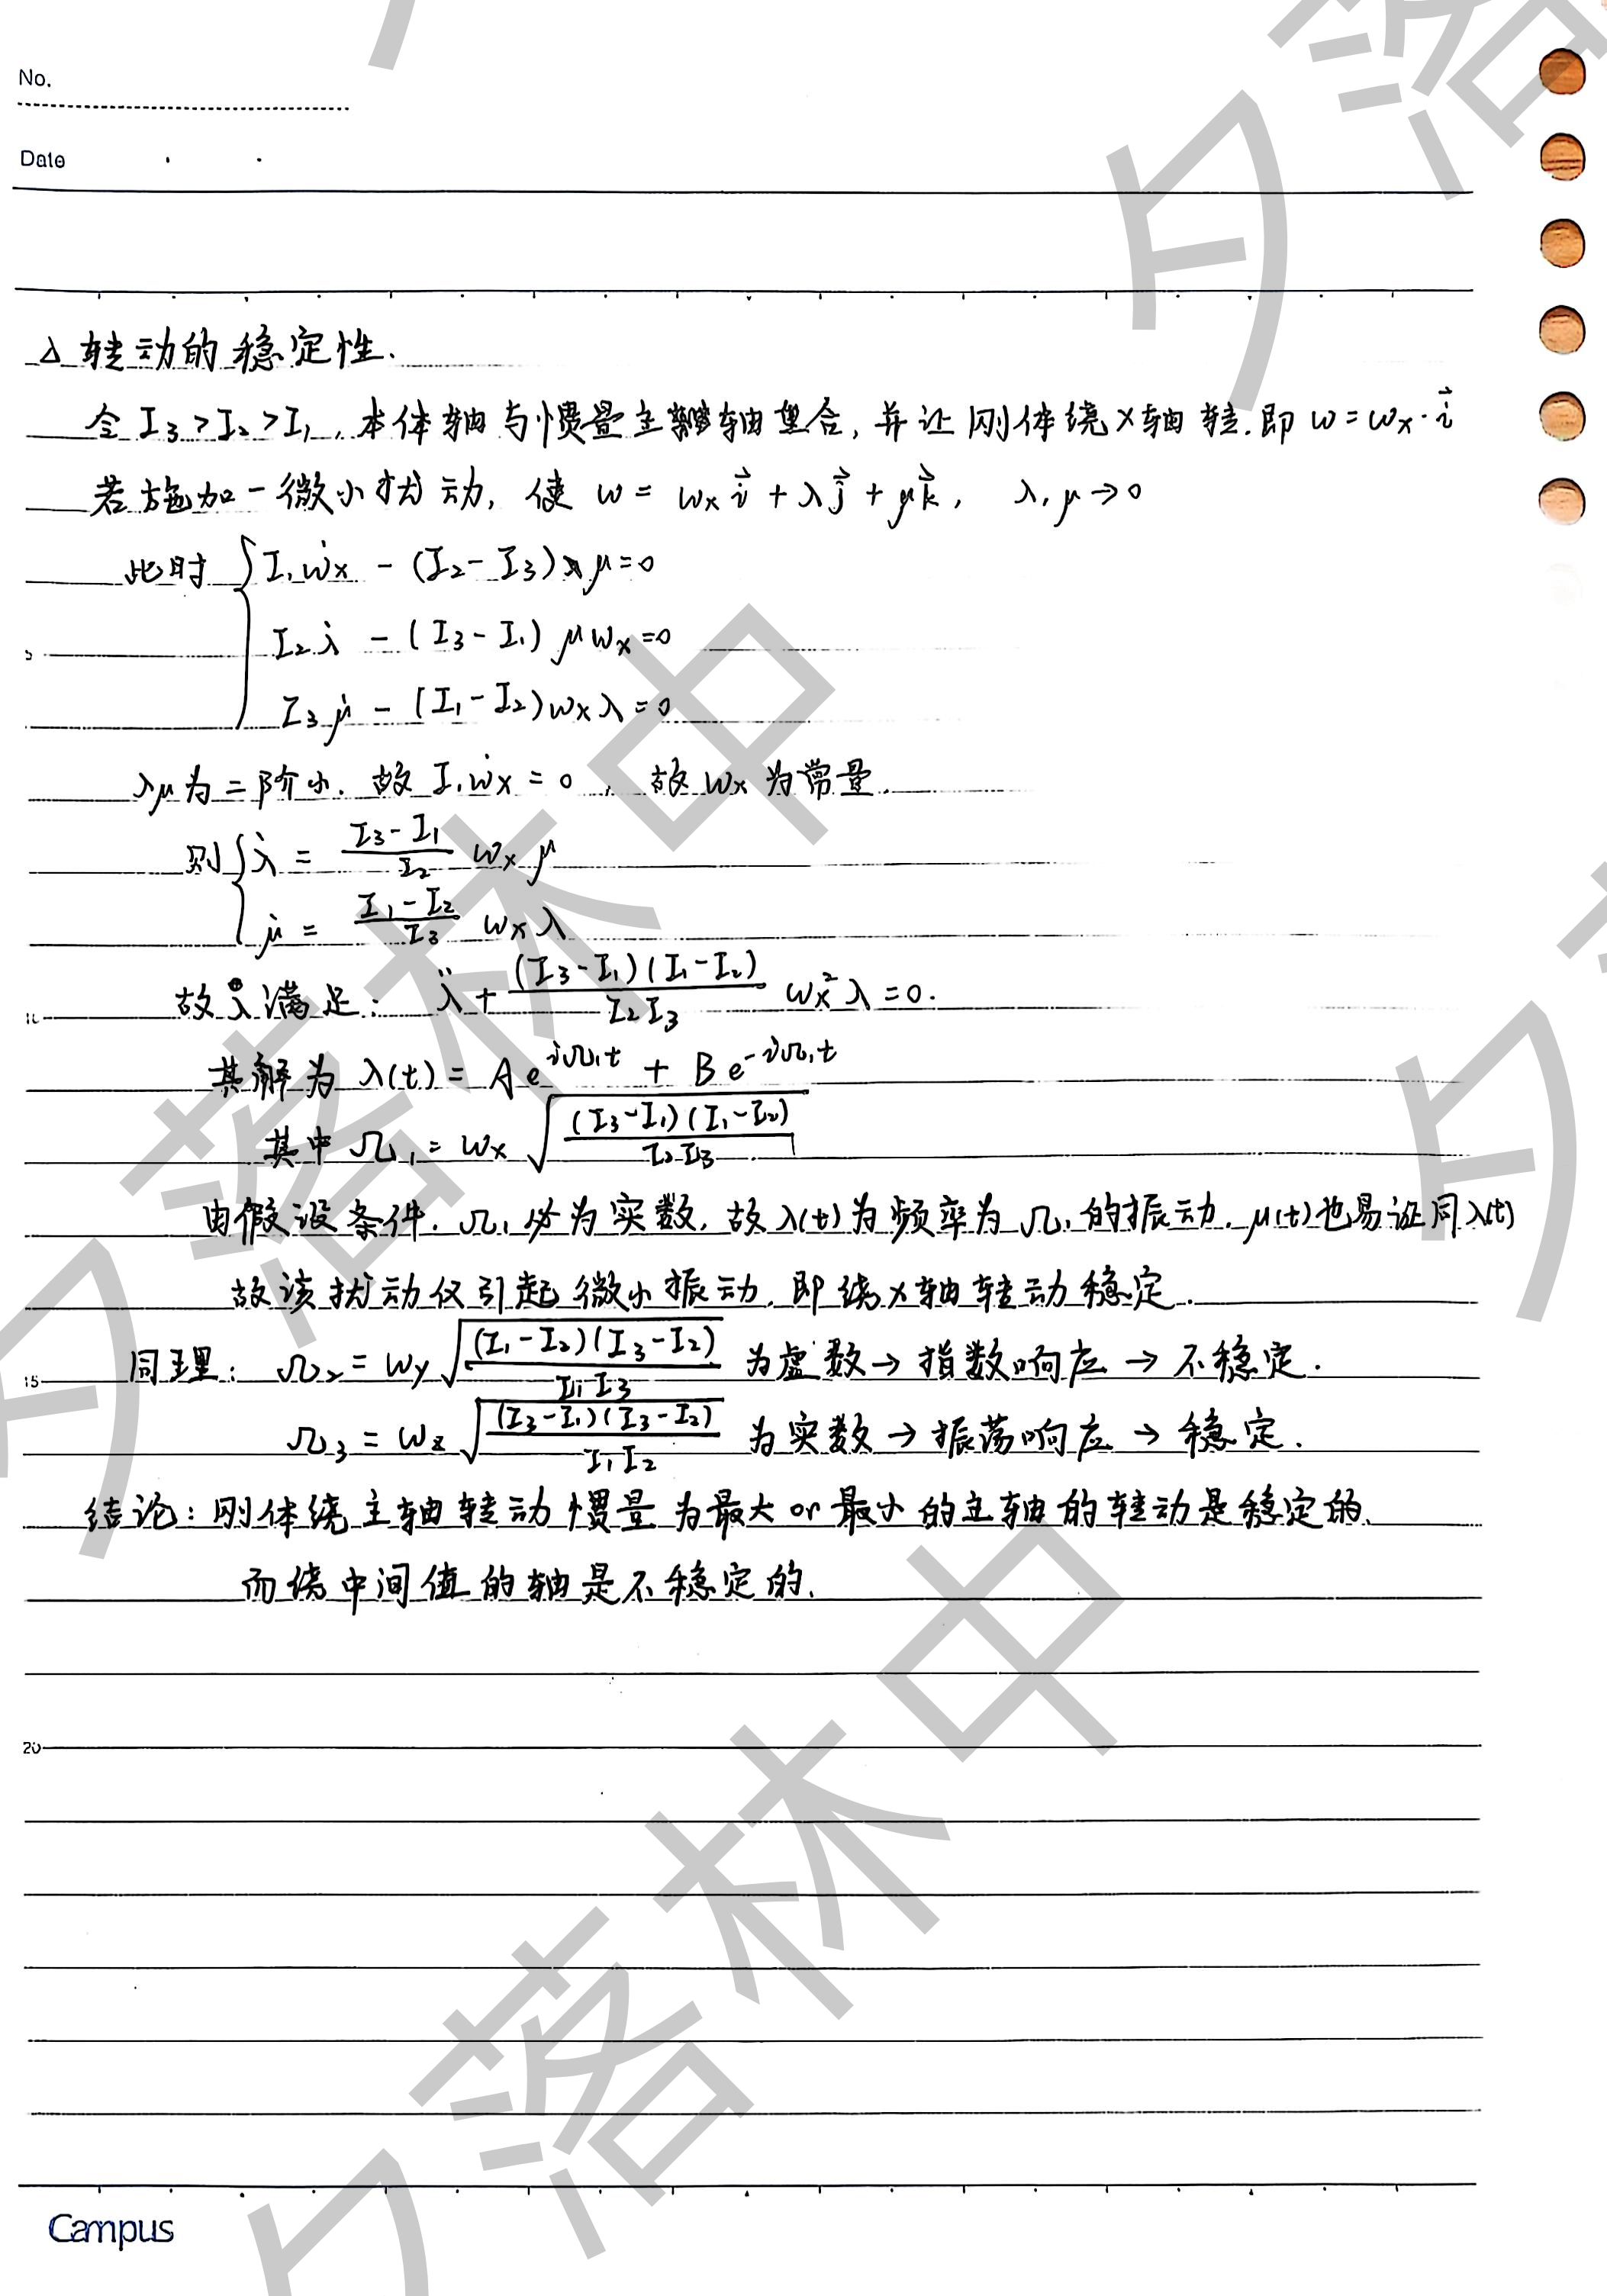 No.
Date
△ 转动的稳定性.
令 I₃>I₂>I₁, 本体轴与惯量主轴重合, 并让刚体绕x轴转. 即 w = wₓ·i⃗
若施加一微小扰动, 使 w = wₓ i⃗ + λ j⃗ + μ k⃗, λ, μ → 0
此时 { I₁ẇₓ - (I₂ - I₃) λμ = 0
I₂λ̇ - (I₃ - I₁) μwₓ = 0
I₃μ̇ - (I₁ - I₂) wₓλ = 0
λμ为二阶小. 故 I₁ẇₓ = 0, 故 wₓ 为常量.
则 { λ̇ = (I₃-I₁)/I₂ wₓ μ
μ̇ = (I₁-I₂)/I₃ wₓ λ
故 λ 满足: λ̈ + (I₃-I₁)(I₁-I₂)/I₂I₃ wₓ² λ = 0.
其解为 λ(t) = A e^{iΩ₁t} + B e^{-iΩ₁t}
其中 Ω₁ = wₓ √((I₃-I₁)(I₁-I₂)/I₂I₃)
由假设条件. Ω₁ 必为实数, 故 λ(t) 为频率为 Ω₁ 的振动. μ(t) 也易证同 λ(t)
故该扰动仅引起微小振动. 即绕x轴转动稳定.
同理: Ω₂ = wy √((I₁-I₂)(I₃-I₂)/I₁I₃) 为虚数 → 指数响应 → 不稳定.
Ω₃ = wz √((I₃-I₁)(I₃-I₂)/I₁I₂) 为实数 → 振荡响应 → 稳定.
结论: 刚体绕主轴转动惯量为最大 or 最小的主轴的转动是稳定的,
而绕中间值的轴是不稳定的.
5
10
15
20
Campus
夕落林中
夕落林中
夕落
夕